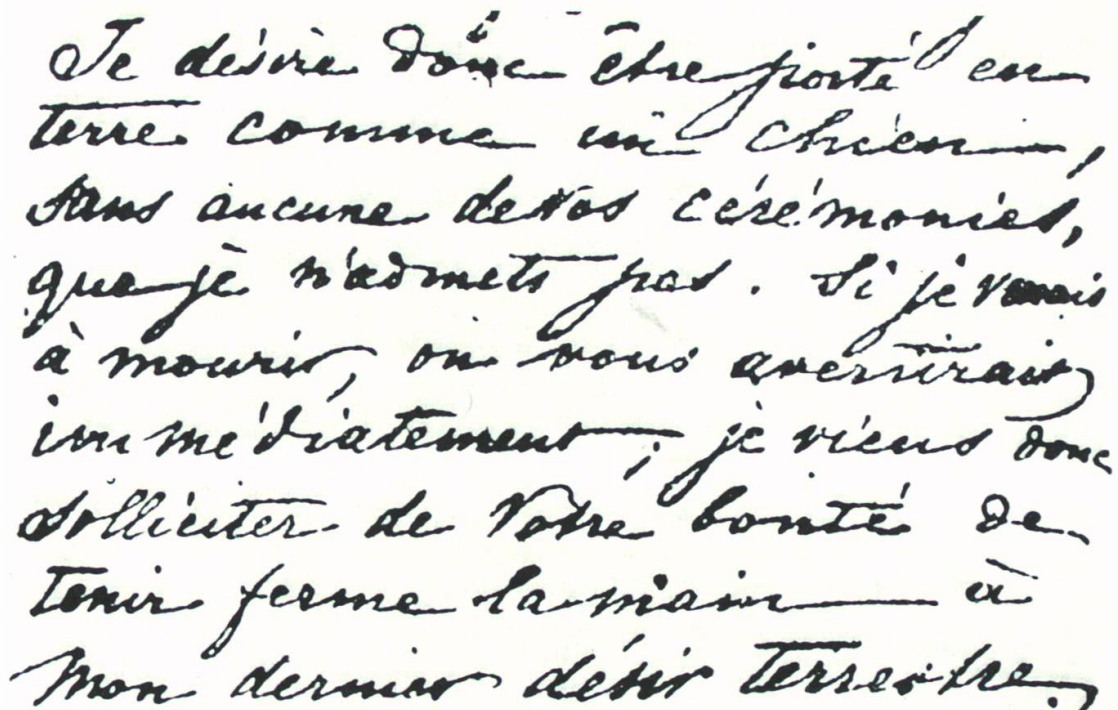 Je désire donc être porté en
terre comme un chien,
sans aucune de vos cérémonies,
que je n'admets pas. Si je venais
à mourir, on vous avertirait
immédiatement, je viens donc
solliciter de votre bonté de
tenir ferme la main à
mon dernier désir terrestre,